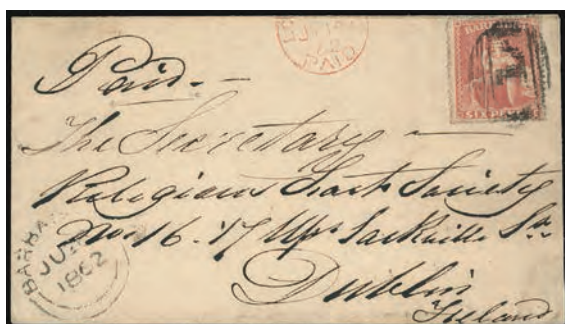 PAID
62
BARBA
SIX PE
Paid —
The Secretary —
Religious Tract Society
No 16. 17 Upr Sackville St.
Dublin
Ireland
BARBA
JU
1862